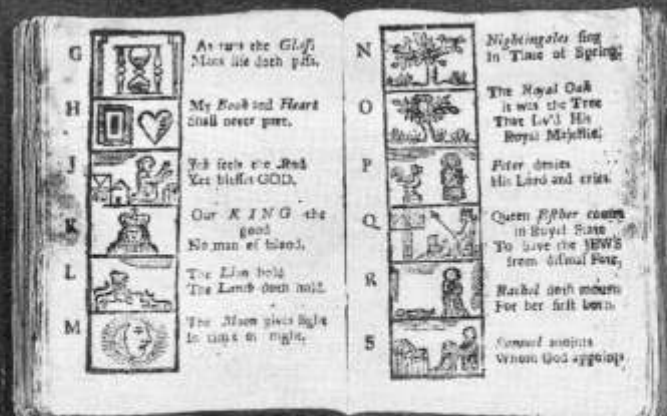 G
As runs the Glass
Mans life doth pass.
H
My Book and Heart
Shall never part.
J
Job feels the Rod
Yet blesses GOD.
K
Our KING the
good
No man of blood.
L
The Lion bold
The Lamb doth hold.
M
The Moon gives light
In time of night.
N
Nightingales sing
In Time of Spring.
O
The Royal Oak
it was the Tree
That sav'd His
Royal Majestie.
P
Peter denies
His Lord and cries.
Q
Queen Esther comes
in Royal State
To Save the JEWS
from dismal Fate.
R
Rachel doth mourn
For her first born.
S
Samuel anoints
Whom God appoints